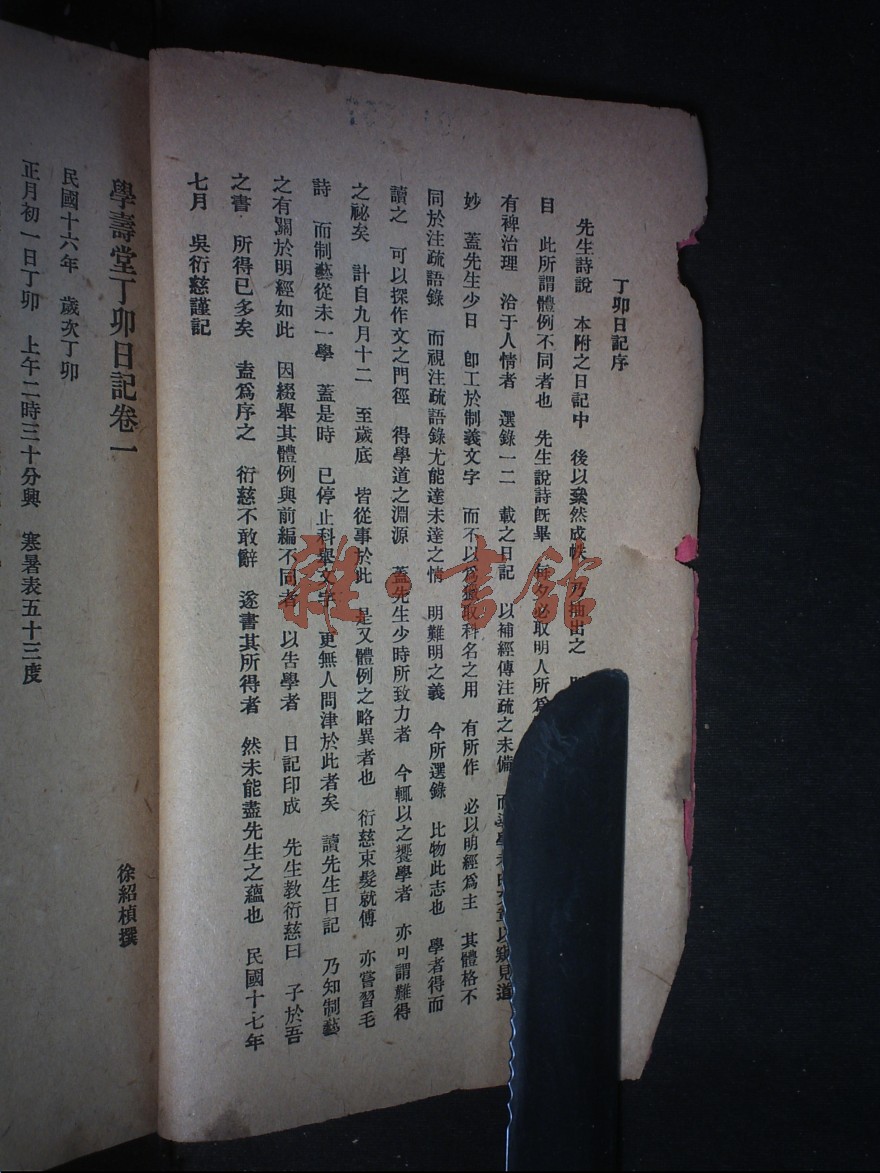 丁卯日記序
先生詩說　本附之日記中　後以裒然成帙　乃抽出之
目　此所謂體例不同者也　先生說詩旣畢　每夕必取明人所爲
有裨治理　洽于人情者　選錄一二　載之日記　以補經傳注疏之未備　而
妙　蓋先生少日　卽工於制義文字　而不以爲獵取科名之用　有所作　必以明經爲主　其體格不
同於注疏語錄　而視注疏語錄尤能達未達之情　明難明之義　今所選錄　比物此志也　學者得而
讀之　可以探作文之門徑　得學道之淵源　蓋先生少時所致力者　今輒以之饗學者　亦可謂難得
之祕矣　計自九月十二　至歲底　皆從事於此　是又體例之略異者也　衍慈束髮就傅　亦嘗習毛
詩　而制藝從未一學　蓋是時　已停止科舉文字　更無人問津於此者矣　讀先生日記　乃知制藝
之有關於明經如此　因綴舉其體例與前編不同者　以告學者　日記印成　先生教衍慈曰　子於吾
之書　所得已多矣　盍爲序之　衍慈不敢辭　遂書其所得者　然未能盡先生之蘊也　民國十七年
七月　吳衍慈謹記
學壽堂丁卯日記卷一
徐紹楨撰
民國十六年　歲次丁卯
正月初一日丁卯　上午二時三十分興　寒暑表五十三度
雜·書館